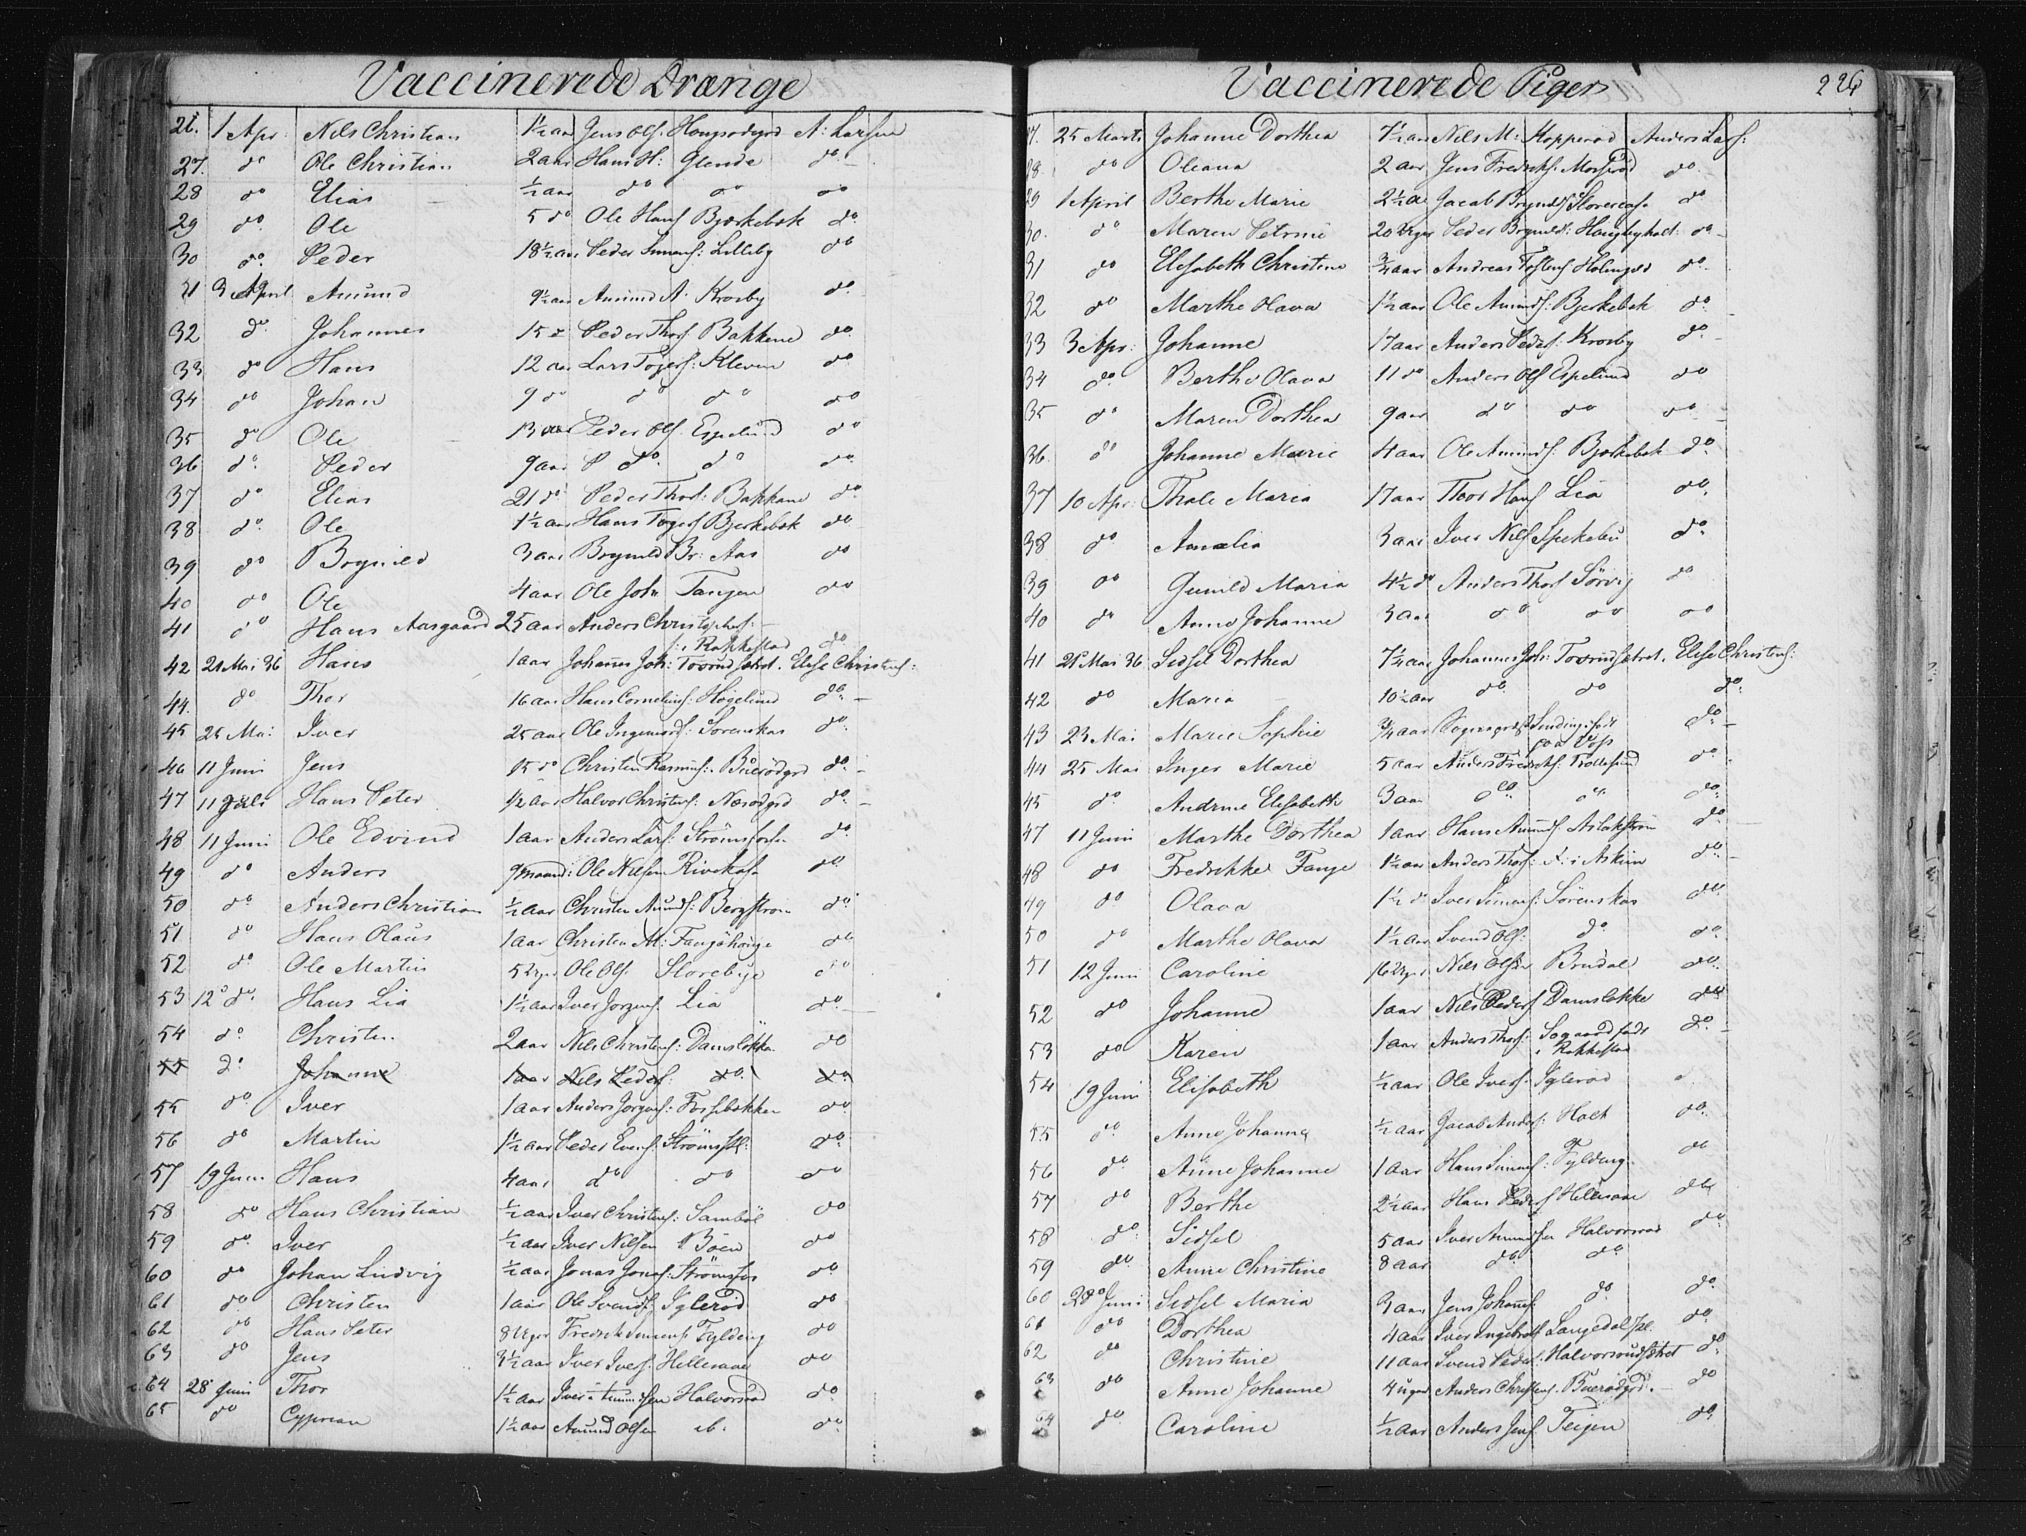 Vaccinerede Drænge
26. 1 Apr: Nils Christian 1½ aar Jens Ols. Hougsødgrd A: Larsen
27. do Ole Christian 2 aar Hans H: Glende do
28 do Elias ½ aar do do do
29 do Ole 5 do Ole Hans Bjærkebæk do
30 do Peder 18½ aar Peder Simens: Lilleby do
31 3 April Amund 9½ aar Amund A. Krosby do
32 do Johannes 15 Peder Thors Bakkene do
33 do Hans 12 aar Lars Togers: Kleven do
34 do Johan 9 do do do do
35 do Ole 13 aar Peder Ols. Espelund do
36 do Peder 9 aar P do do do
37 do Elias 21 do Peder Thors: Bakkene do
38 do Ole 1½ aar Hans Togers Bjerkebæk do
39 do Brynild 3 aar Brynild Br: Aas do
40 do Ole 4 aar Ole Joh Tangen do
41 do Hans Aasgaard 25 aar Anders Christophers: i Rakkestad do
42 21 Mai 36 Hans 1 aar Johannes Joh: Tosrudsætret. Elise Christens:
44. do Thor 16 aar Hans Cornelius: Høgelund do
45 25 Mai Iver 25 aar Ole Ingemunds: Sørenskas do
46 11 Juni Jens 15 do Christen Rasmus: Buerødgrd do
47 11 Juli Hans Peter ½ aar Halvor Christens: Næsødgrd do
48 11 Juni Ole Edvind 1 aar Anders Lars: Strømsfors do
49 do Anders 9 maand: Ole Nilsen Rivekas do
50 do Anders Christian ½ aar Christen Amunds: Bergstrøm do
51 do Hans Olaus 1 aar Christen M: do
52 do Ole Martin 5 Uger Ole Ols. Storebye do
53 12 do Hans Lia 1½ aar Iver Jørgens: Lia do
54 do Christen 2 aar Nils Christens: Damsløkka do
55 do Johanne 1 aar Nils Peders: do do
55 do Iver 1 aar Anders Jørgens: Fossebækken do
56 do Martin 1½ aar Peder Evens: do
57 19 Juni Hans 4 aar do do do
58 do Hans Christian ½ aar Iver Christens: Sambøl do
59 do Iver ½ aar Iver Nilsen Böen do
60 do Johan Ludvig ½ aar Jonas Jonas: Strømsfos do
61 do Christen 1 aar Ole Svends: Iglerød do
62 do Hans Peter 8 Uger Fredrik Simens: Fylding do
63 do Jens 3½ aar Iver Ivers: Hillesaae do
64 28 Juni Thor 1½ aar Iver Amundsen Halvorsrød do
65 do Cyprian 1½ aar Amund Olsen ib. do
Vaccinerede Piger 226
27. 25 Marts Johanne Dorthea 7½ aar Nils M: Kopperød Anders Lars:
28 do Oleana 2 aar Jens Fredriks. Moserød do
29 1 April Berthe Marie 2½ aar Jacob Brynilds. do
30. do Maren Petrine 20 Uger Peder Brynilds: do
31 do Elisabeth Christine ¾ aar Andreas Tostens Holmgrd do
32 do Marthe Olava 1½ aar Ole Amunds: Bjerkebæk do
33 3 Apr: Johanne 17 aar Anders Peders: Krosby do
34 do Berthe Olava 11 do Anders Ols Espelund do
35 do Maren Dorthea 9 aar do do do
36 do Johanne Marie 4 aar Ole Amunds: Bjærkebæk do
37 10 Apr: Thale Maria 17 aar Thor Hans Lia do
38 do Amalia 3 aar Iver Nils Spekebu do
39 do Gunild Maria 4½ do Anders Thors Sörvig do
40 do Anne Johanne 3 aar do do do
41 21 Mai 36 Sidsel Dorthea 7½ aar Johannes Joh: Tosrudsætret. Elise Christens:
42 do Maria 10½ aar do do do
43 23 Mai Marie Sophie ¾ aar Sogneprest Sinding født paa Voss do
44 25 Mai Inger Marie 5 aar Anders Fredriks: Trollesund do
45 do Andrine Elisabeth 3 aar do do do
47 11 Juni Marthe Dorthea 1 aar Hans Amunds Aslakstrøm do
48 do Fredrikke Fange 1½ aar Anders Thors: F. i Askim do
49 do Olava 1½ do Iver Simens: Sørenskas do
50 do Marthe Olava 1½ aar Svend Ols: do do
51 12 Juni Caroline 16 Uger Nils Olsen Brudal do
52 do Johanne 1 aar Nils Peders Damsløkke do
53 do Karen 1 aar Anders Thors: Sogaard føds i Rakkestad do
54 19 Juni Elisabeth ½ aar Ole Ivers: Iglerød
55 do Anne Johanne ½ aar Jacob Anders: Holt do
56 do Anne Johanne 1 aar Hans Simens: Fylding do
57 do Berthe 2½ aar Hans Peders Hillesaae do
58 do Sidsel 5 aar Iver Amundsen Halvorsrød do
59 do Anne Christine 8 aar do do
60 28 Juni Sidsel Maria 3 aar Jens Johans: do do
61 do Dorthea 4 aar Iver Ingebrets Langedal pl. do
62 do Christine 11 aar Svend Peders: Halvorsrudsætret do
63 do Anne Johanne 4 uger Anders Christens. Buerødgrd. do
64 do Caroline ½ aar Anders Jens Teigen do